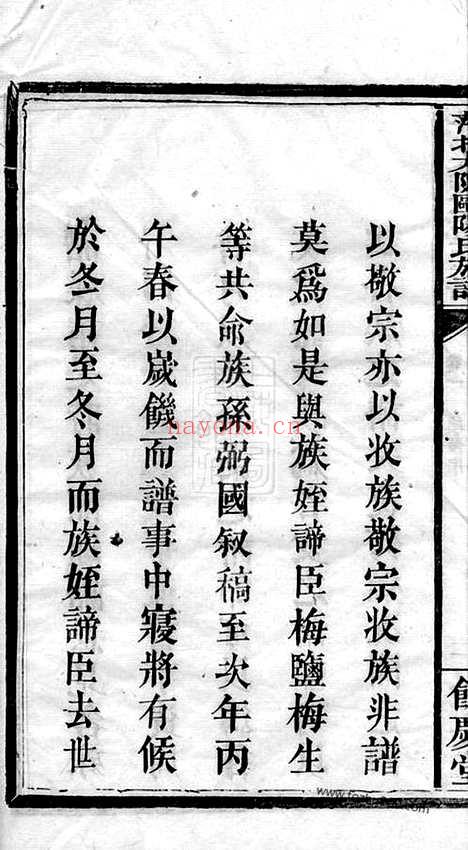 以敬宗亦以收族敬宗收族非譜
莫爲如是與族姪諦臣梅鹽梅生
等共命族孫弼國叙稿至次年丙
午春以歲饑而譜事中寢將有候
於冬月至冬月而族姪諦臣去世
陳氏族譜
餘慶堂
nayona.cn